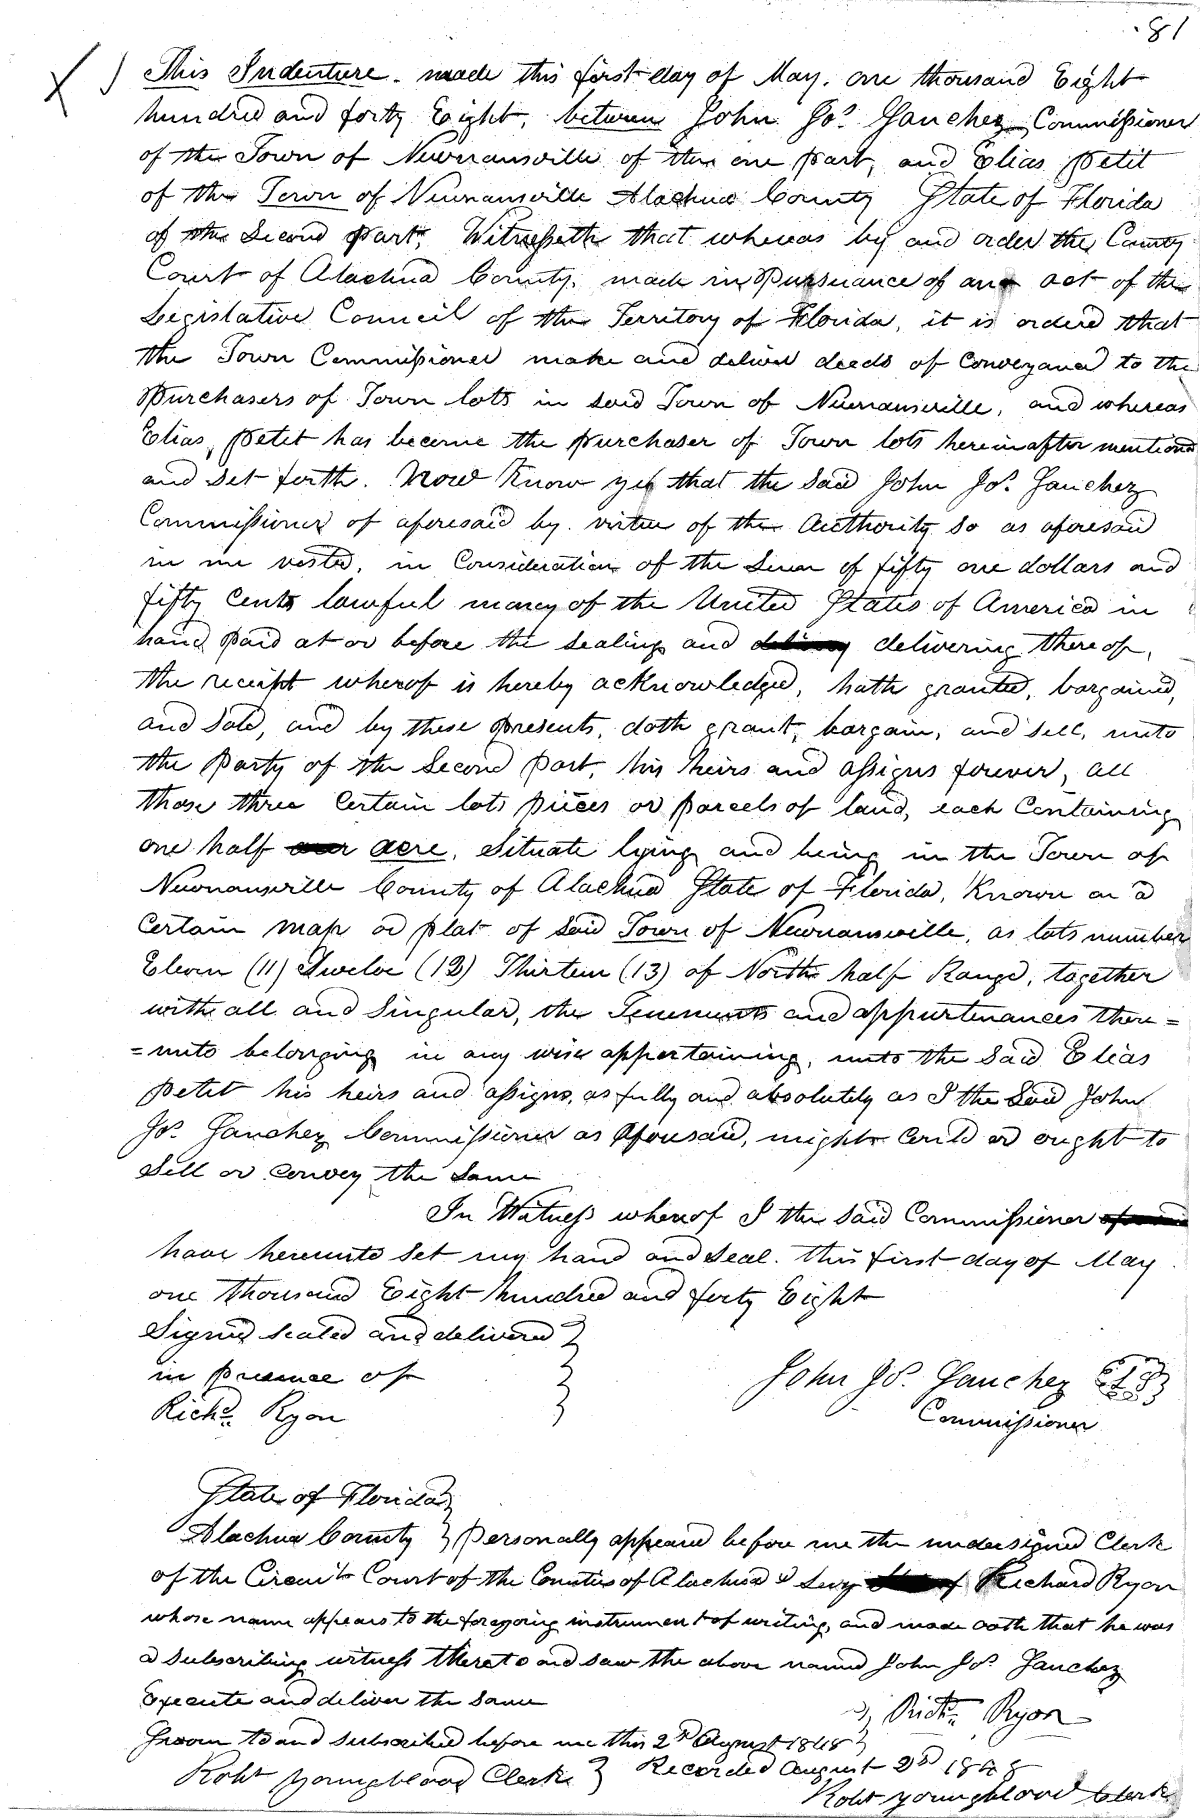 81
This Indenture. made this first day of May. one thousand Eight
hundred and forty Eight, between John Jos. Sanchez Commissioner
of the Town of Newnansville of the one part, and Elias petit
of the Town of Newnansville Alachua County State of Florida
of the Second part, Witnesseth that whereas by and order the County
Court of Alachua County. made in pursuance of an act of the
Legislative Council of the Territory of Florida, it is orderd that
the Town Commissioner make and deliver deeds of Conveyance to the
purchasers of Town lots in said Town of Newnansville, and whereas
Elias petit has become the purchaser of Town lots herein after mentiond
and set forth. Now Know ye that the said John Jos. Sanchez
Commissioner of aforesaid by virtue of the authority so as aforesaid
in me vested, in Consideration of the Sum of fifty one dollars and
fifty Cents lawful money of the United States of America in
hand paid at or before the sealing and delivering thereof,
the receipt whereof is hereby acknowledged, hath granted, bargained,
and sold, and by these presents, doth grant, bargain, and sell, unto
the party of the Second part, his heirs and assigns forever, all
those three Certain lots pieces or parcels of land, each Containing
one half acre, Situate lying and being in the Town of
Newnansville County of Alachua State of Florida, Known on a
Certain map or plat of said Town of Newnansville, as lots number
Eleven (11) Twelve (12) Thirteen (13) of North half Range, together
with all and Singular, the Tenements and appurtenances there=
=unto belonging in any wise appertaining, unto the said Elias
petit his heirs and assigns, as fully and absolutely as I the Said John
Jos. Sanchez Commissioner as aforesaid, might Could or ought to
Sell or Convey the Same
In Witness whereof I the said Commissioner
have hereunto set my hand and seal. this first day of May
one thousand Eight hundred and forty Eight
Signed sealed and delivered
in presence of
John Jos. Sanchez LS
Richd. Ryon
Commissioner
State of Florida
Alachua County personally appeared before me the undersigned Clerk
of the Circuit Court of the Counties of Alachua & Levy Richard Ryon
whose name appears to the foregoing instrument of writing, and made oath that he was
a subscribing witness thereto and saw the above named John Jos. Sanchez
Execute and deliver the same
Richd. Ryon
Sworn to and subscribed before me this 2nd August 1848
Robt Youngblood Clerk
Recorded August 2nd 1848
Robt Youngblood Clerk